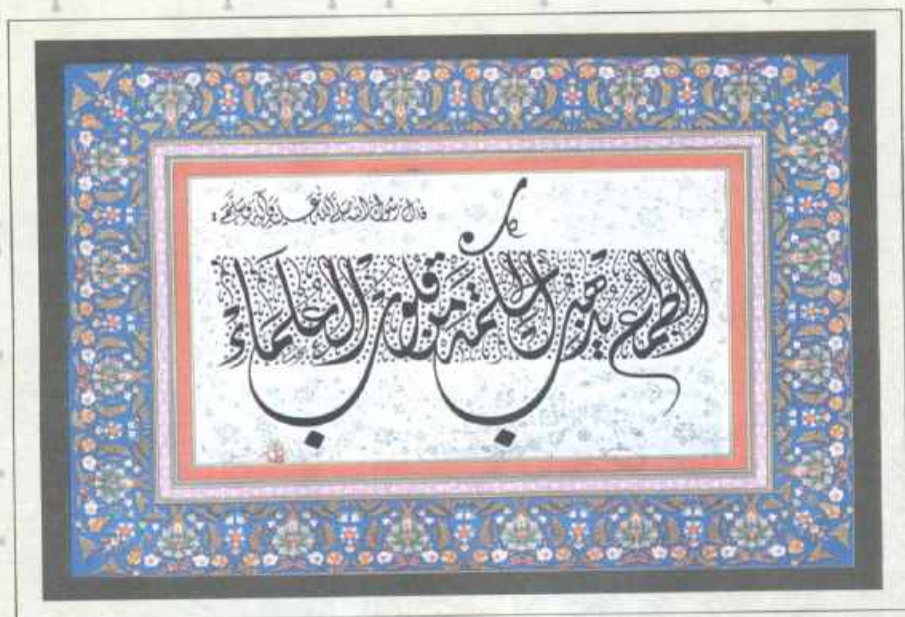 قال رسول الله صلى الله عليه وآله وسلم:
الطمع يذهب الحكمة من قلوب العلماء